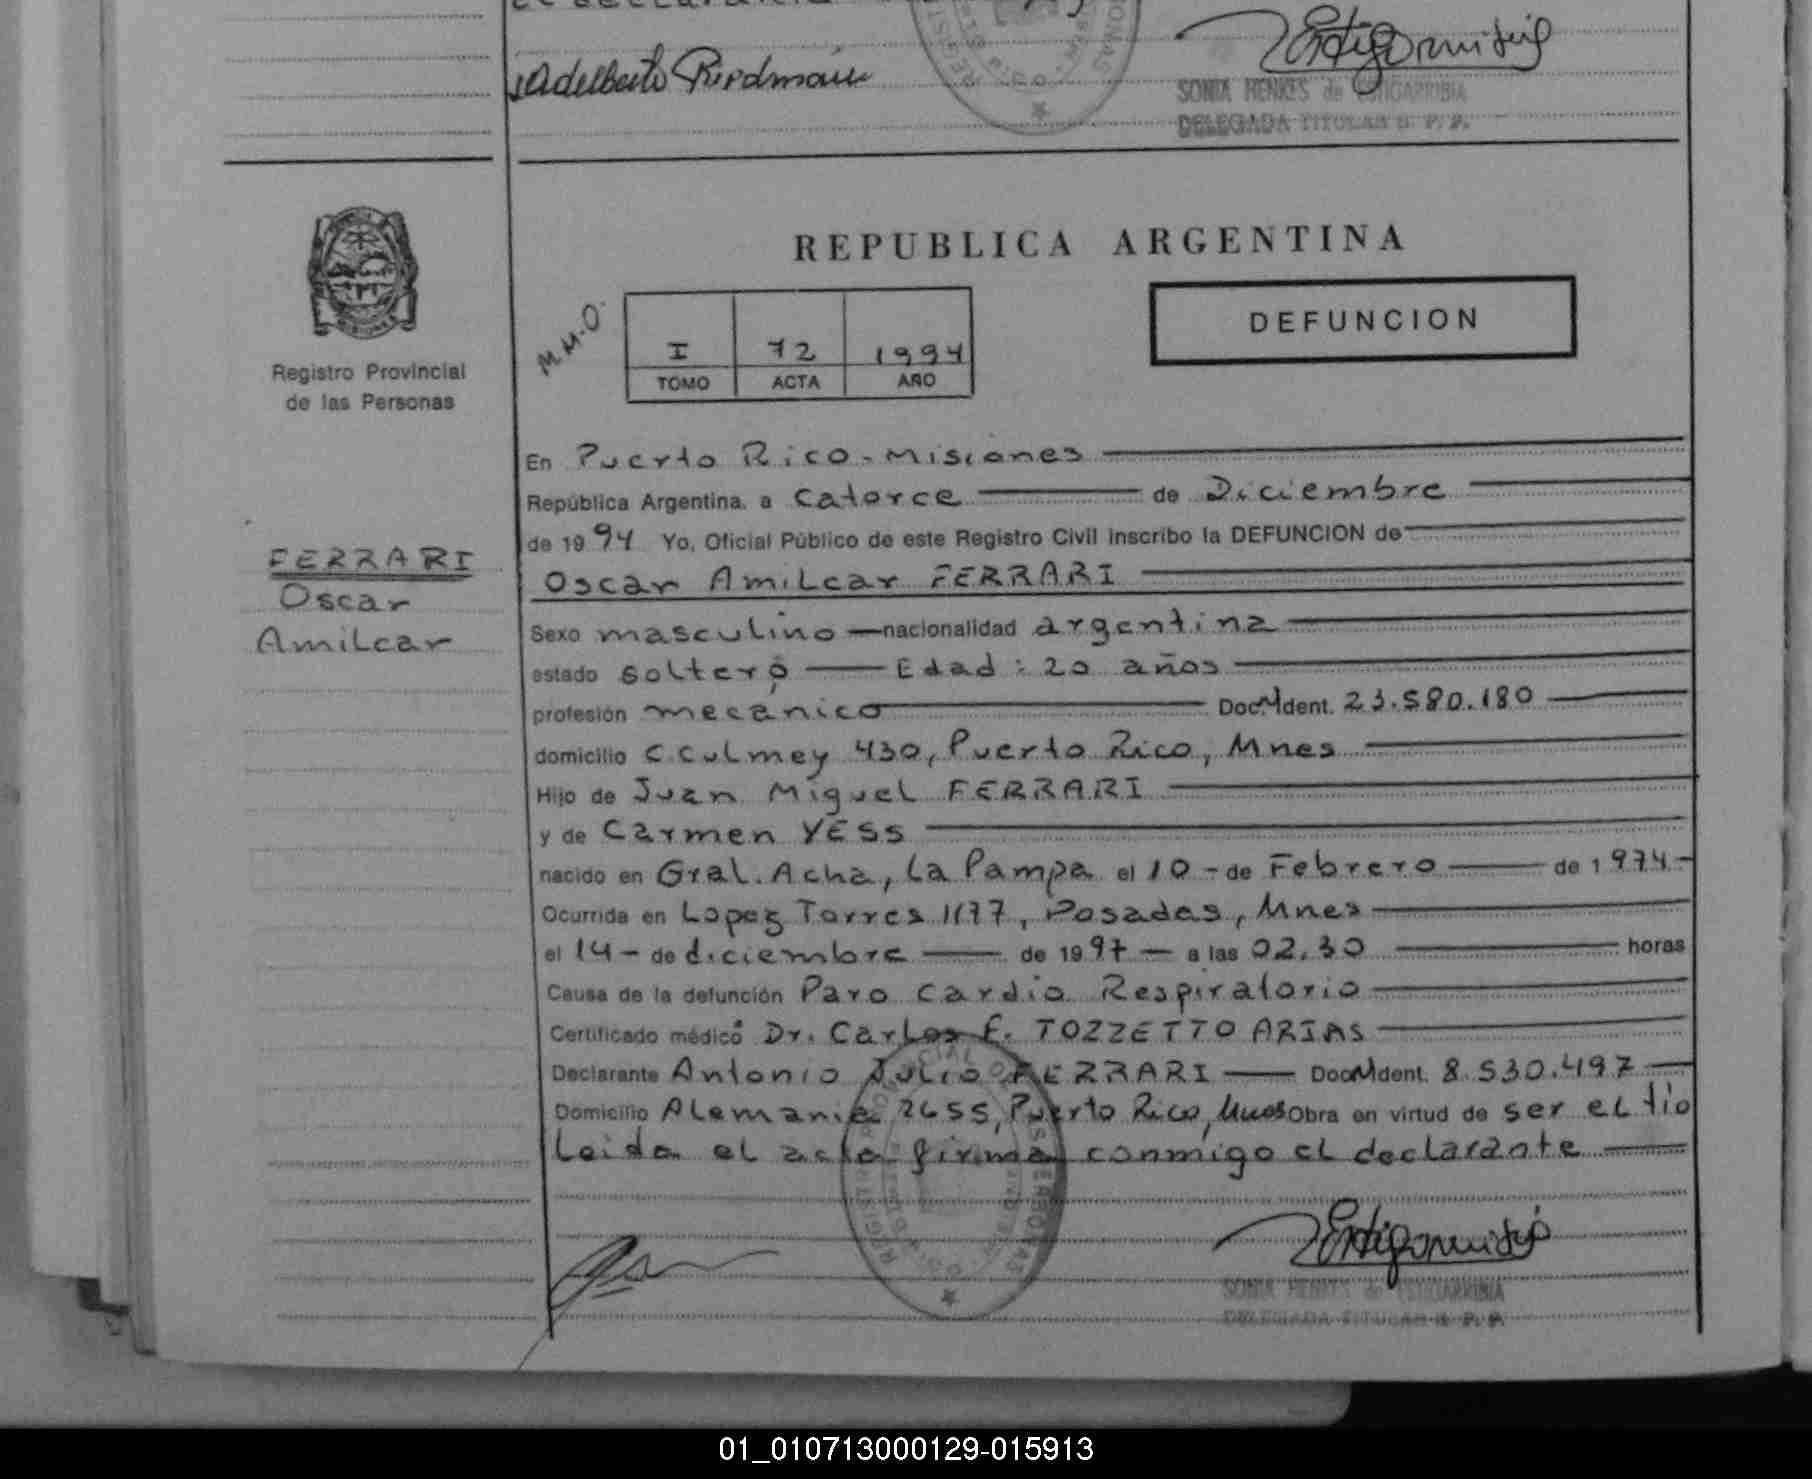 Adelberto Riedmaier
SONIA HENKES de ESTIGARRIBIA
DELEGADA TITULAR R. P. P.
REPUBLICA ARGENTINA
M.M.O.
I 72 1994
TOMO ACTA AÑO
DEFUNCION
MISIONES
Registro Provincial
de las Personas
FERRARI
Oscar
Amilcar
En Puerto Rico - Misiones
República Argentina, a catorce de Diciembre
de 1994 Yo, Oficial Público de este Registro Civil inscribo la DEFUNCION de
Oscar Amilcar FERRARI
Sexo masculino nacionalidad argentina
estado soltero Edad: 20 años
profesión mecánico Doc. Ident. 23.580.180
domicilio C. Culmey 430, Puerto Rico, Mnes
Hijo de Juan Miguel FERRARI
y de Carmen YESS
nacido en Gral. Acha, La Pampa el 10 - de Febrero de 1974 -
Ocurrida en Lopez Torres 1177, Posadas, Mnes
el 14 - de diciembre de 1994 - a las 02.30 horas
Causa de la defunción Paro Cardio Respiratorio
Certificado médico Dr. Carlos E. TOZZETTO ARIAS
Declarante Antonio Julio FERRARI Doc. Ident. 8.530.497
Domicilio Alemania 2655, Puerto Rico, Mnes Obra en virtud de ser el tío
Leida el acta firma conmigo el declarante
SONIA HENKES de ESTIGARRIBIA
DELEGADA TITULAR R. P. P.
01_010713000129-015913